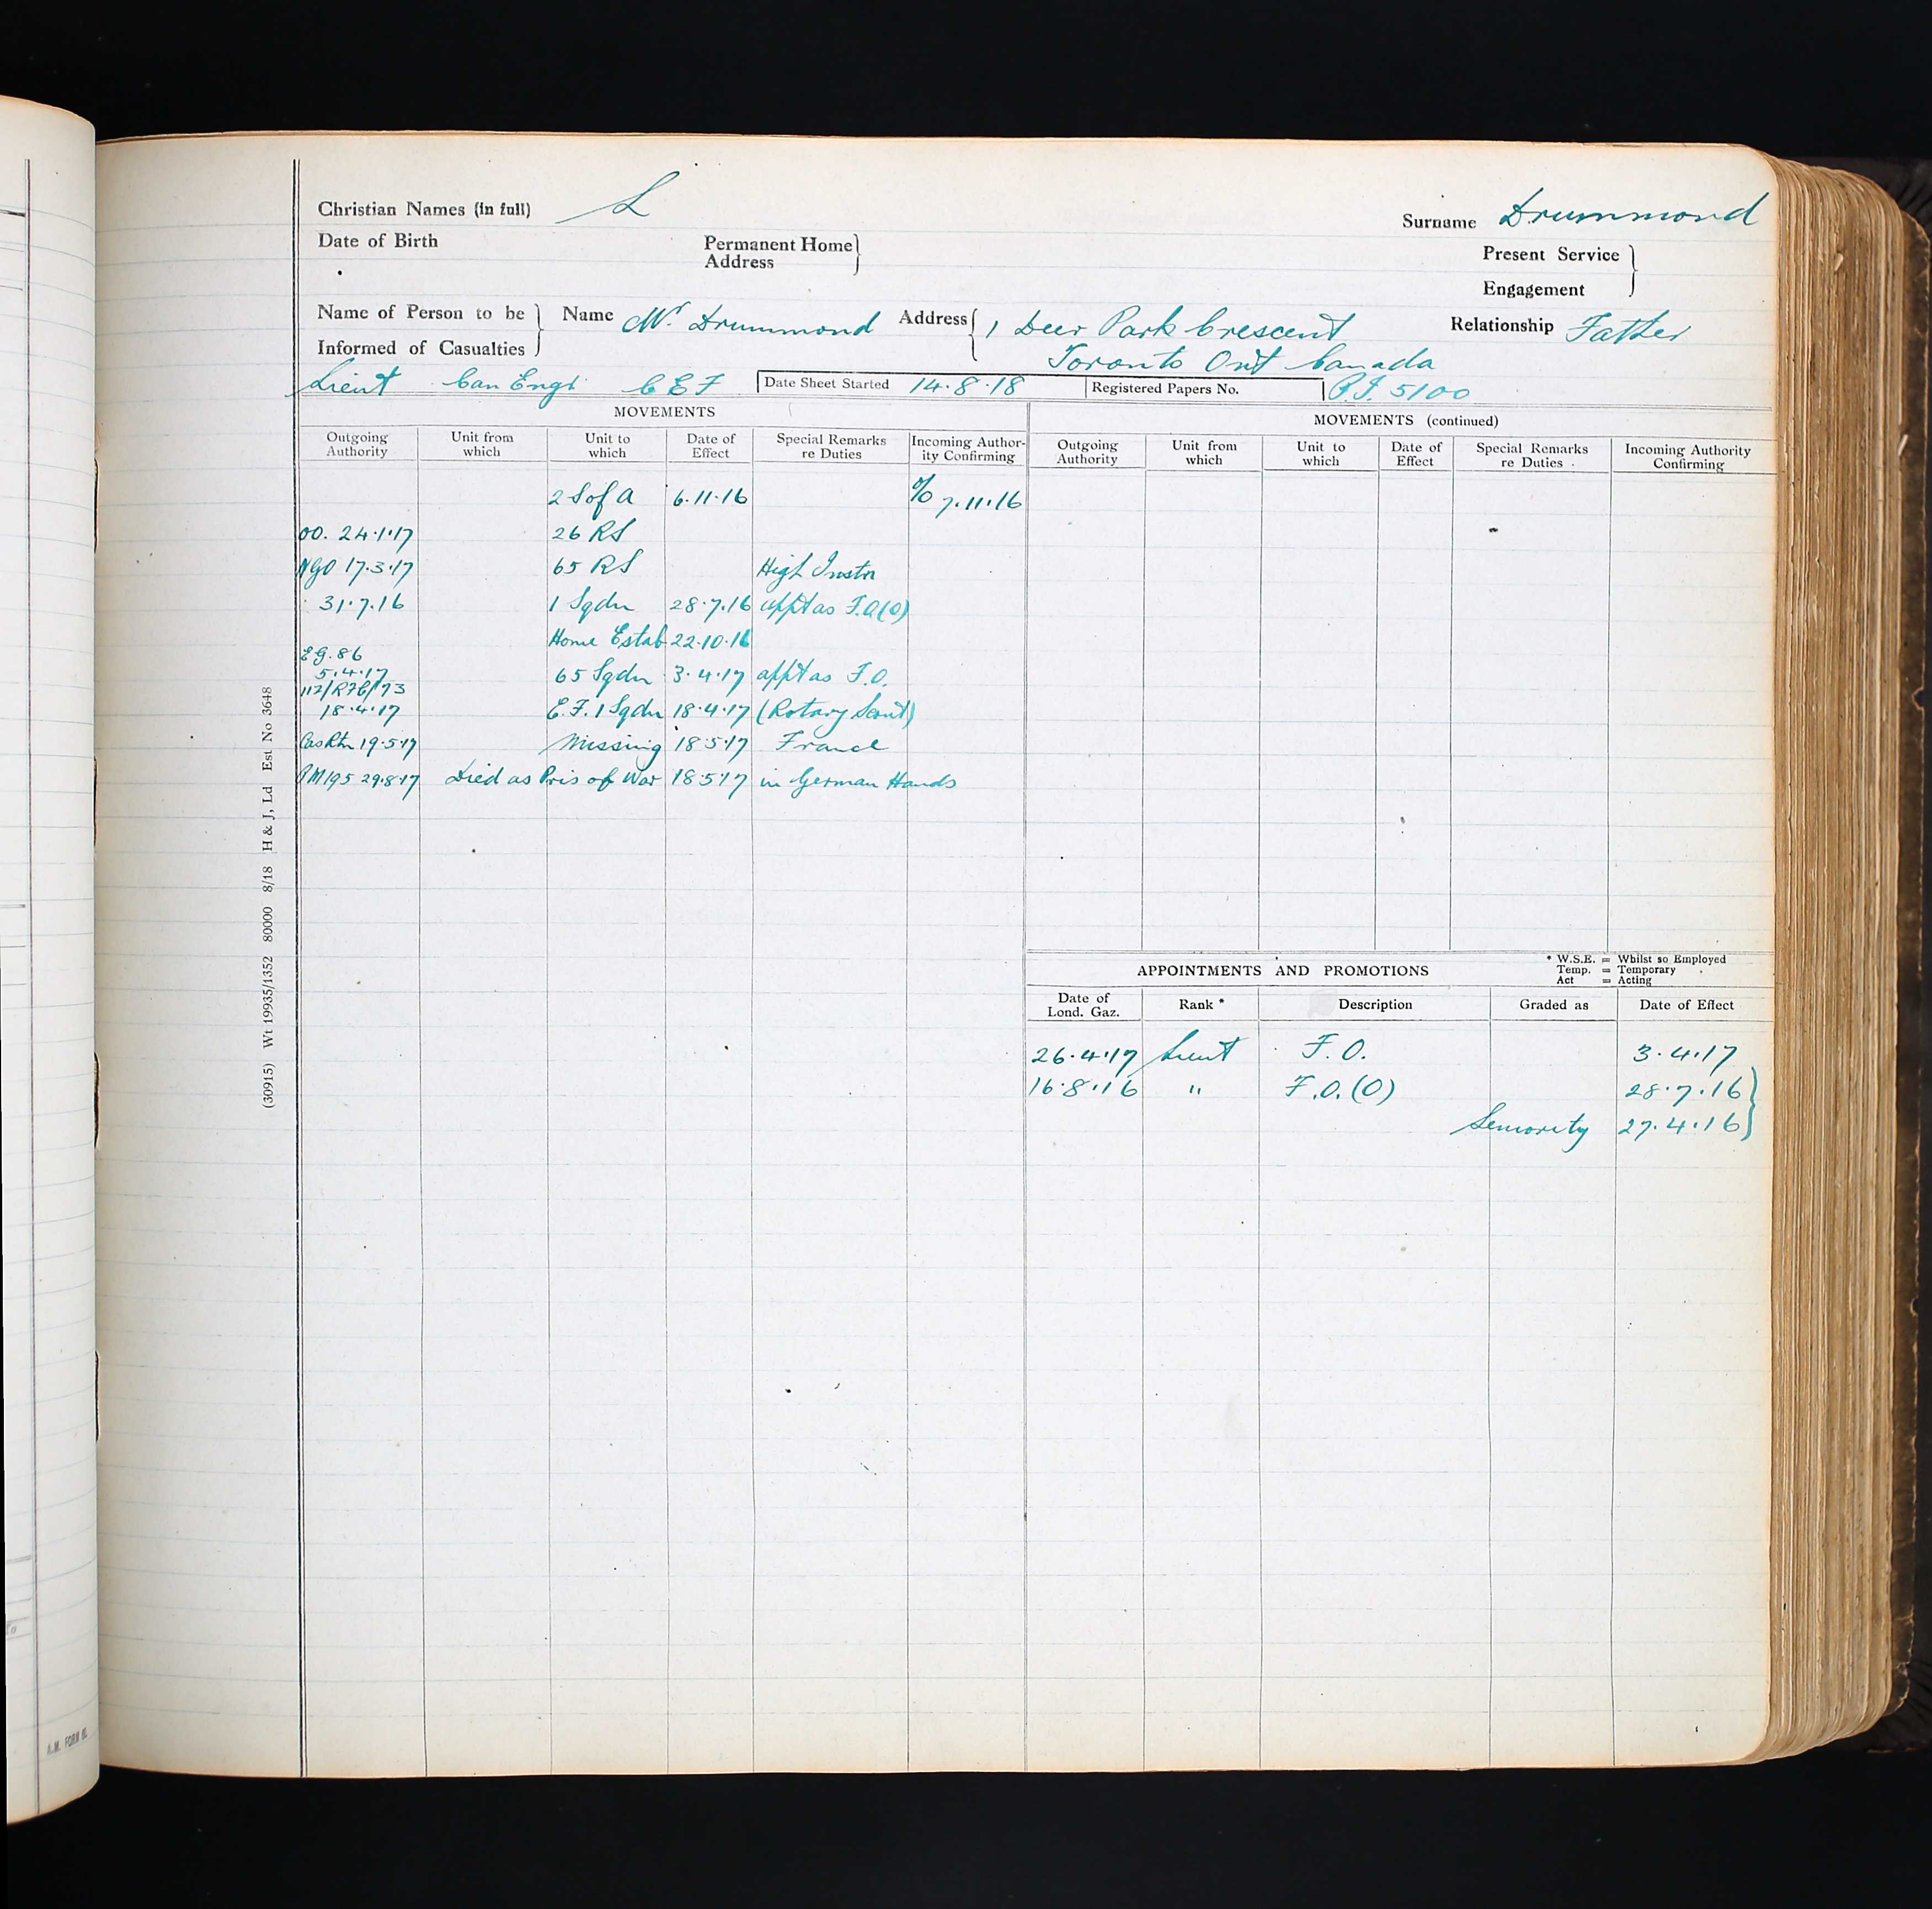 Christian Names (in full) L
Surname Drummond
Date of Birth
Permanent Home Address
Present Service
Engagement
Name of Person to be Informed of Casualties
Name Mr. Drummond
Address 1 Deer Park Crescent
Toronto Ont Canada
Relationship Father
Lieut Can Engs C E F
Date Sheet Started 14.8.18
Registered Papers No. 5100
MOVEMENTS
Outgoing Authority Unit from which Unit to which Date of Effect Special Remarks re Duties Incoming Authority Confirming
2 S of A 6.11.16 % 7.11.16
OO. 24.1.17 26 RS
NGO 17.3.17 65 RS High Instn
31.7.16 1 Sqdn 28.7.16 appt as F.O(O)
Home Estab 22.10.16
EG. 86
5.4.17 65 Sqdn 3.4.17 appt as F.O.
18.4.17 E.F. 1 Sqdn 18.4.17 (Rotary Scout)
Cas Rtn 19.5.17 Missing 18.5.17 France
29.8.17 Died as Pris of War 18.5.17 in German Hands
MOVEMENTS (continued)
Outgoing Authority Unit from which Unit to which Date of Effect Special Remarks re Duties Incoming Authority Confirming
APPOINTMENTS AND PROMOTIONS
* W.S.E. = Whilst so Employed
Temp. = Temporary
Act = Acting
Date of Lond. Gaz. Rank * Description Graded as Date of Effect
26.4.17 Lieut F.O. 3.4.17
16.8.16 " F.O.(O) 28.7.16
Seniority 27.4.16
(30915) Wt 19935/1352 80000 8/18 H & J, Ld Est No 3648
A.M. FORM